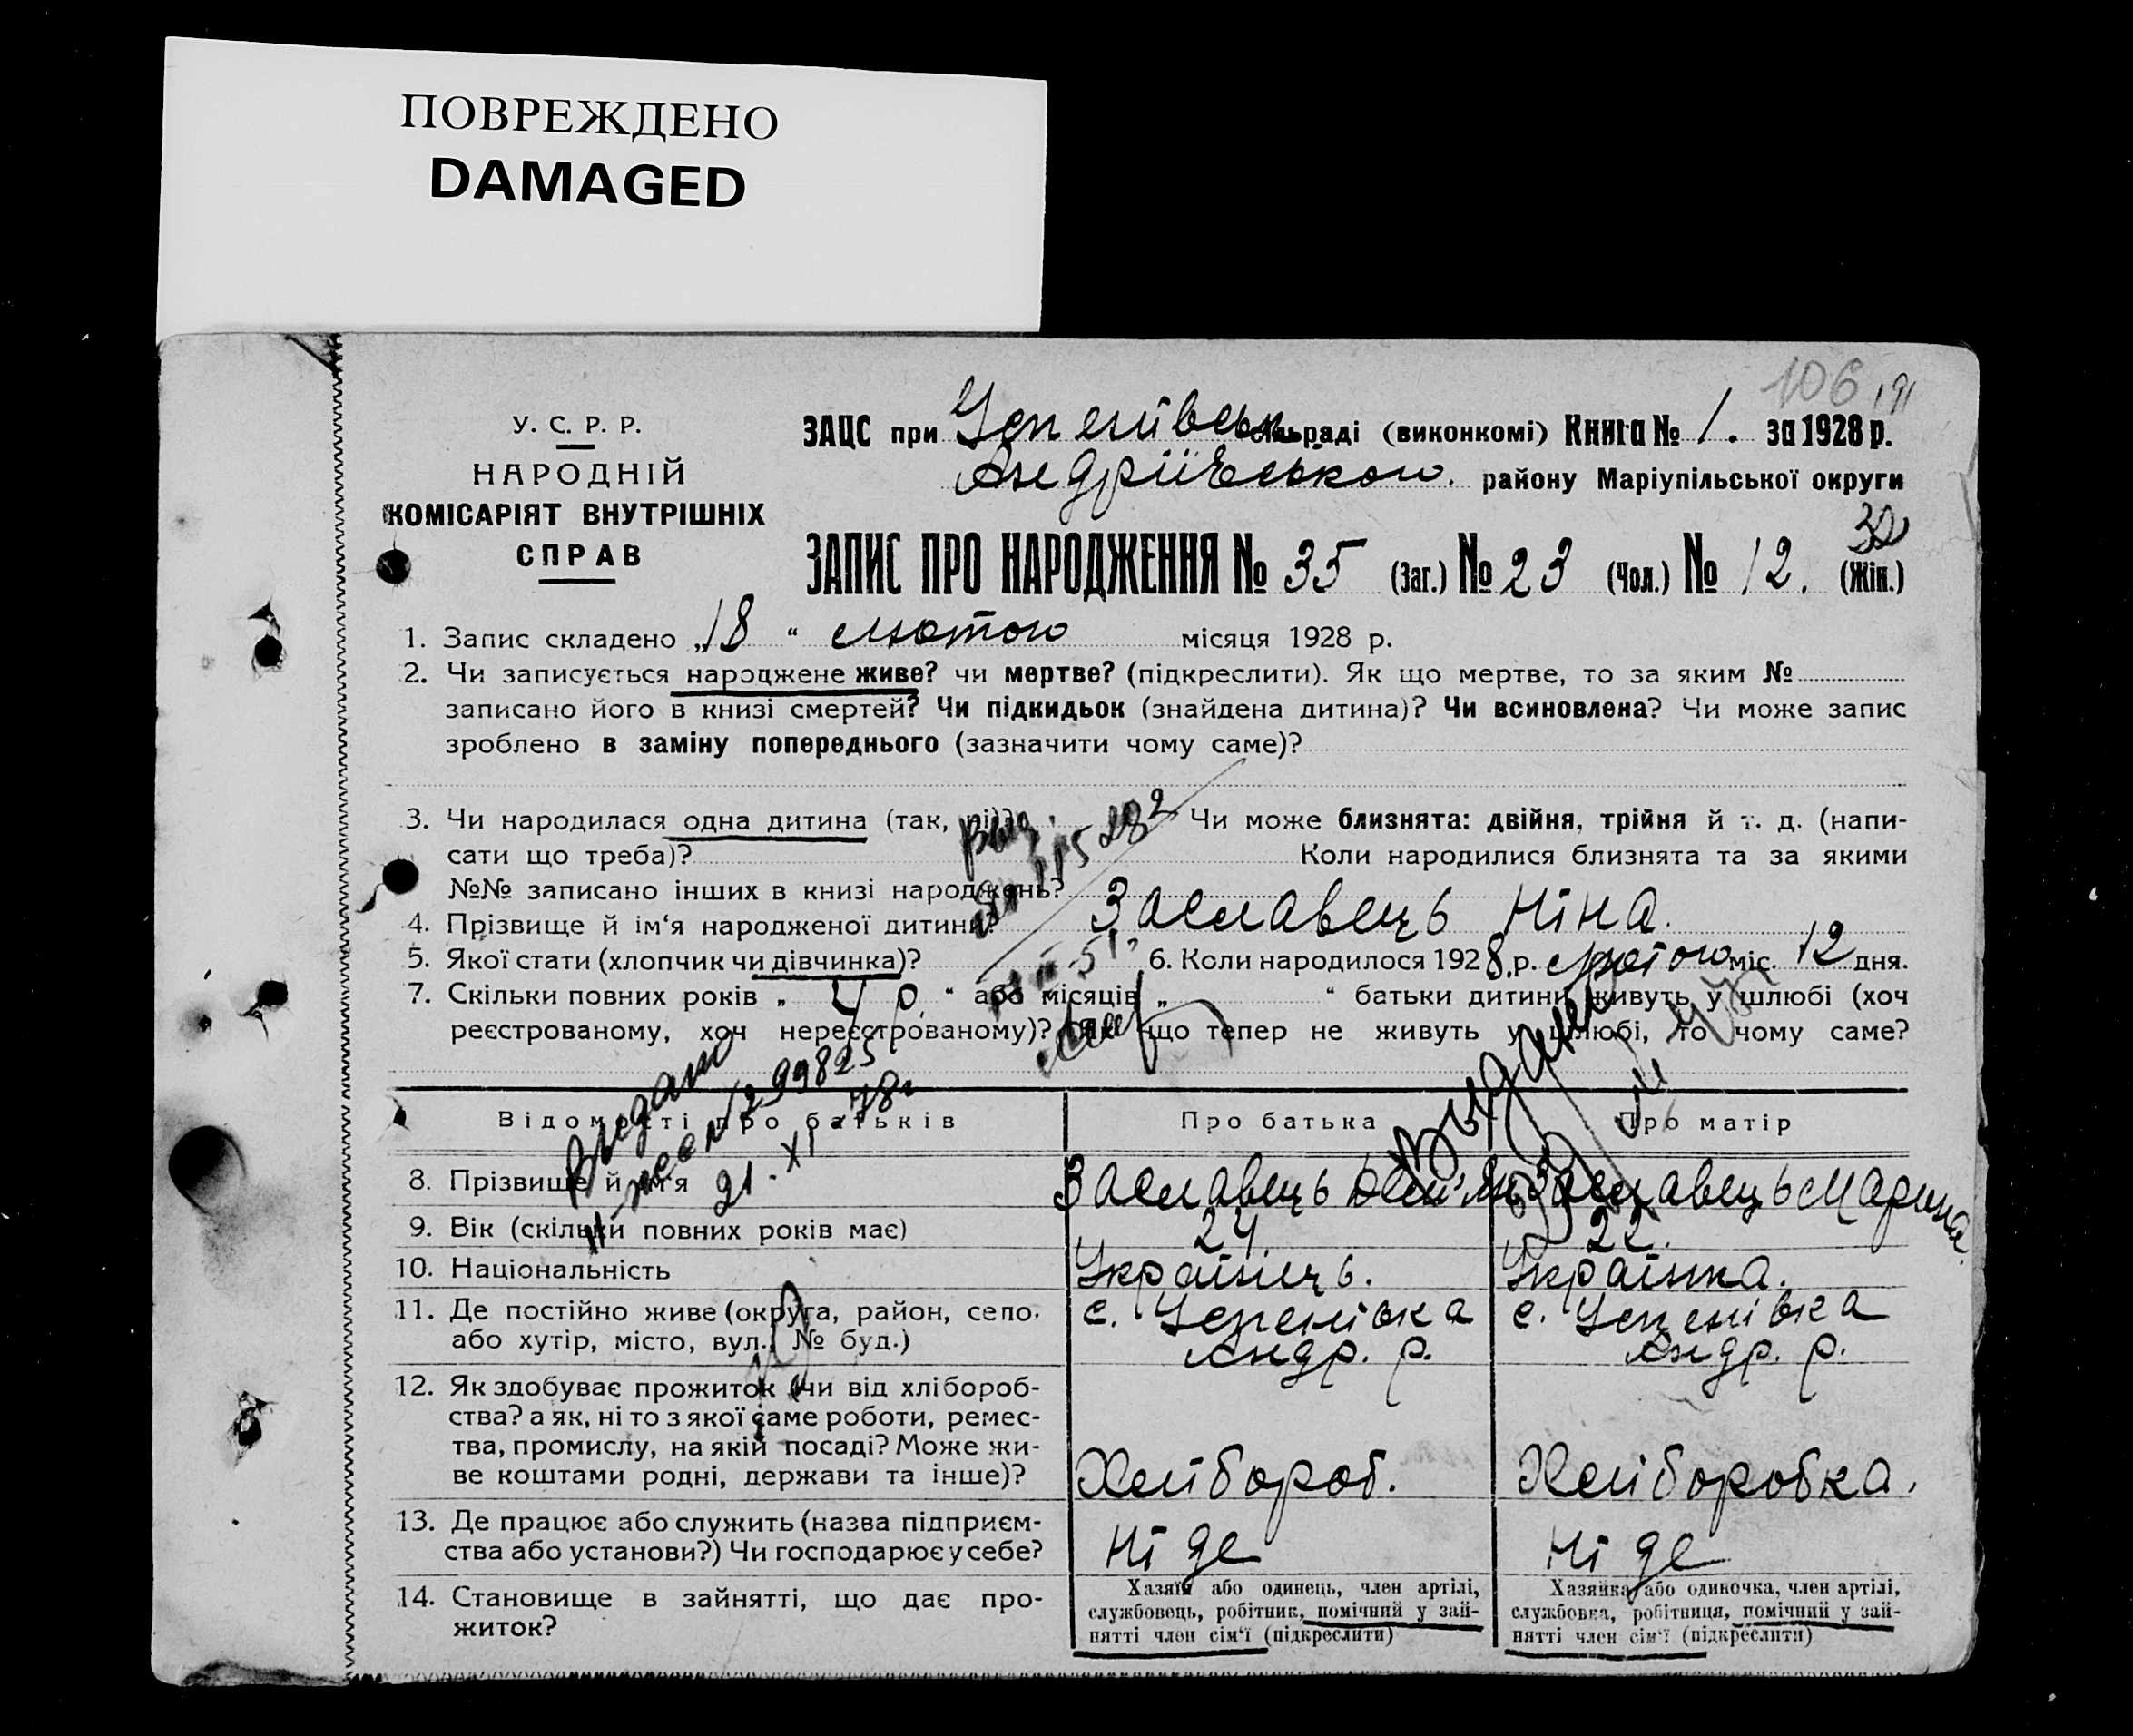 ПОВРЕЖДЕНО
DAMAGED
106
У. С. Р. Р.
НАРОДНІЙ
КОМІСАРІЯТ ВНУТРІШНІХ
СПРАВ
ЗАЦС при Успенівськ. сільраді (виконкомі) Книга № 1. за 1928 р.
Андріївського. району Маріупільської округи
ЗАПИС ПРО НАРОДЖЕННЯ № 35 (Заг.) № 23 (Чол.) № 12. (Жін.)
1. Запис складено „18“ лютого місяця 1928 р.
2. Чи записується народжене живе? чи мертве? (підкреслити). Як що мертве, то за яким №
записано його в книзі смертей? Чи підкидьок (знайдена дитина)? Чи всиновлена? Чи може запис
зроблено в заміну попереднього (зазначити чому саме)?
3. Чи народилася одна дитина (так, ні)? Чи може близнята: двійня, трійня й т. д. (напи-
сати що треба)? Коли народилися близнята та за якими
№№ записано інших в книзі народжень?
4. Прізвище й ім'я народженої дитини? Заславець Ніна.
5. Якої стати (хлопчик чи дівчинка)? 6. Коли народилося 1928 р. лютого міс. 12 дня.
7. Скільки повних років „ 4 р. “ або місяців „ “ батьки дитини живуть у шлюбі (хоч
реєстрованому, хоч нереєстрованому)? Як що тепер не живуть у шлюбі, то чому саме?
Видано
299825
21.XI 78г
Відомості про батьків Про батька Про матір
8. Прізвище й ім'я Заславець Заславець Марина
9. Вік (скільки повних років має) 24. 22.
10. Національність Українець. Українка.
11. Де постійно живе (округа, район, село. с. Успенівка с. Успенівка
або хутір, місто, вул., № буд.) Андр. р. Андр. р.
12. Як здобуває прожиток (чи від хлібороб-
ства? а як, ні то з якої саме роботи, ремес-
тва, промислу, на якій посаді? Може жи-
ве коштами родні, держави та інше)? Хлібороб. Хліборобка.
13. Де працює або служить (назва підприєм-
ства або установи?) Чи господарює у себе? Ні де Ні де
14. Становище в зайнятті, що дає про-
житок?
Хазяїн або одинець, член артілі,
службовець, робітник, помічний у зай-
нятті член сім'ї (підкреслити)
Хазяйка або одиночка, член артілі,
службовка, робітниця, помічний у зай-
нятті член сім'ї (підкреслити)